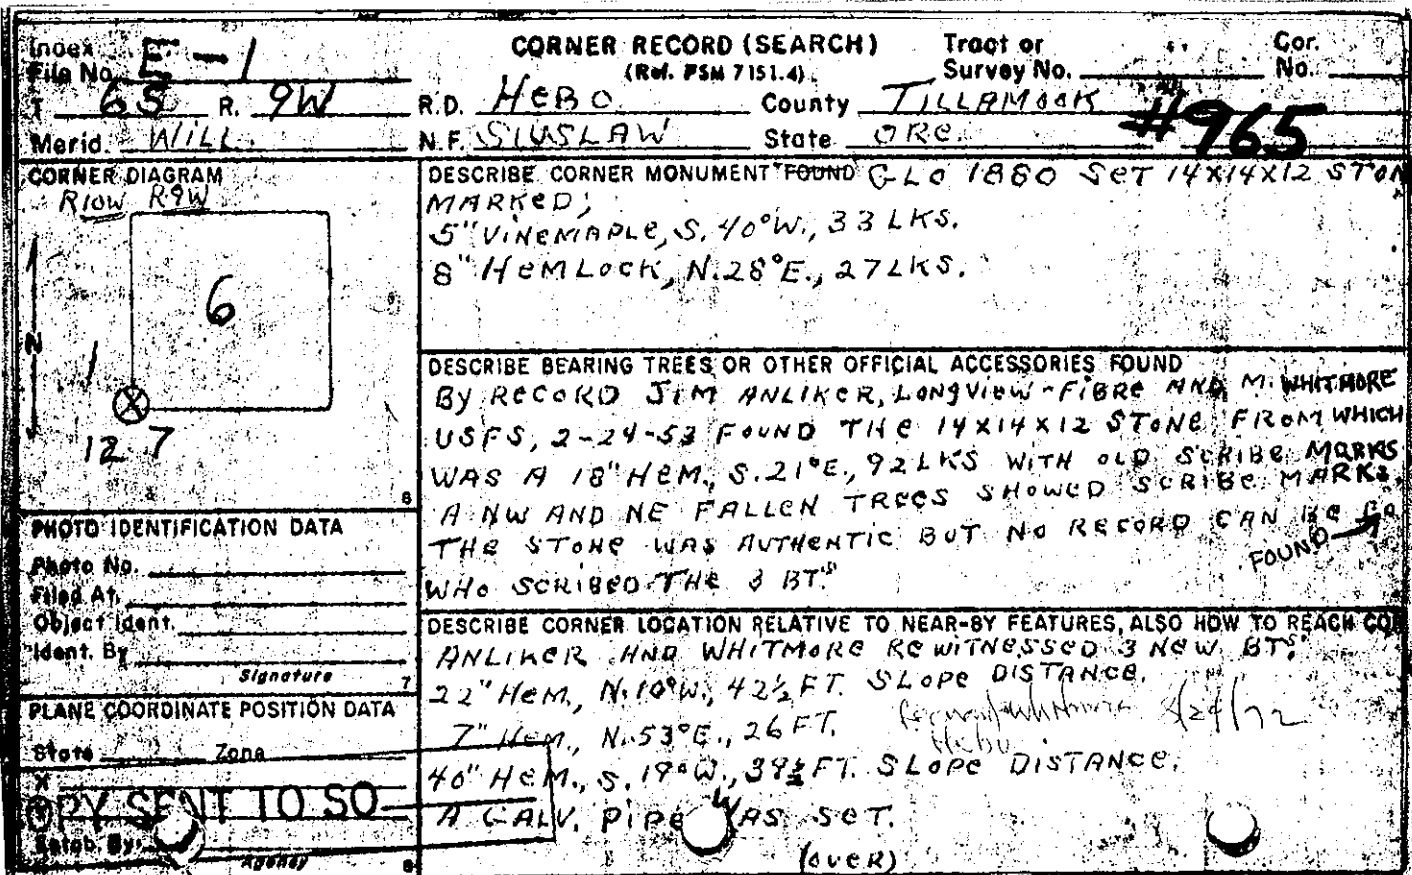 CORNER RECORD (SEARCH)
(Ref. FSM 7151.4)
Index
File No. E-1
Tract or
Survey No.
Cor.
No.
T 6S R. 9W R.D. HEBO County TILLAMOOK
#965
Merid. WILL. N.F. SIUSLAW State ORE.
CORNER DIAGRAM
R10W R9W
6
N
1
12 7
6
DESCRIBE CORNER MONUMENT FOUND GLO 1880 SET 14X14X12 STON
MARKED;
5" VINEMAPLE, S. 40°W., 33 LKS.
8" HEMLOCK, N.28°E., 27LKS.
DESCRIBE BEARING TREES OR OTHER OFFICIAL ACCESSORIES FOUND
BY RECORD JIM ANLIKER, LONGVIEW-FIBRE AND M. WHITMORE
USFS, 2-24-53 FOUND THE 14X14X12 STONE FROM WHICH
WAS A 18" HEM., S.21°E., 92LKS WITH OLD SCRIBE MARKS
A NW AND NE FALLEN TREES SHOWED SCRIBE MARKS.
THE STONE WAS AUTHENTIC BUT NO RECORD CAN BE
FOUND
WHO SCRIBED THE 3 BTS.
PHOTO IDENTIFICATION DATA
Photo No.
Filed At.
Object Ident.
Ident. By
Signature
7
DESCRIBE CORNER LOCATION RELATIVE TO NEAR-BY FEATURES, ALSO HOW TO REACH COR
ANLIKER AND WHITMORE REWITNESSED 3 NEW BTS.
22" HEM., N.10°W., 42½ FT. SLOPE DISTANCE.
7" HEM., N.53°E., 26 FT. Whitmore 8/24/72
Hebo
40" HEM., S. 19°W., 39½ FT. SLOPE DISTANCE.
A GALV. PIPE WAS SET.
(OVER)
PLANE COORDINATE POSITION DATA
State Zone
X
COPY SENT TO SO
Estab. By
Agency
8